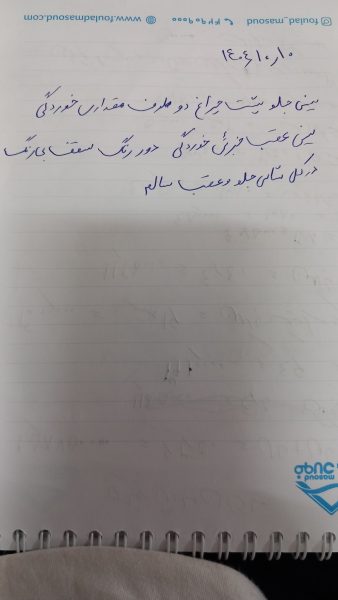 foulad_masoud ۰۰۰ ۴۲۹۰۹۰۰۰ www.fouladmasoud.com
۱۴۰۴٫۱۰٫۱۰
سینی جلو پشت چراغ دو طرف مقداری خوردگی
سینی عقب جزئی خوردگی دور رنگ سقف بی رنگ
در کل شاسی جلو و عقب سالم
masoud